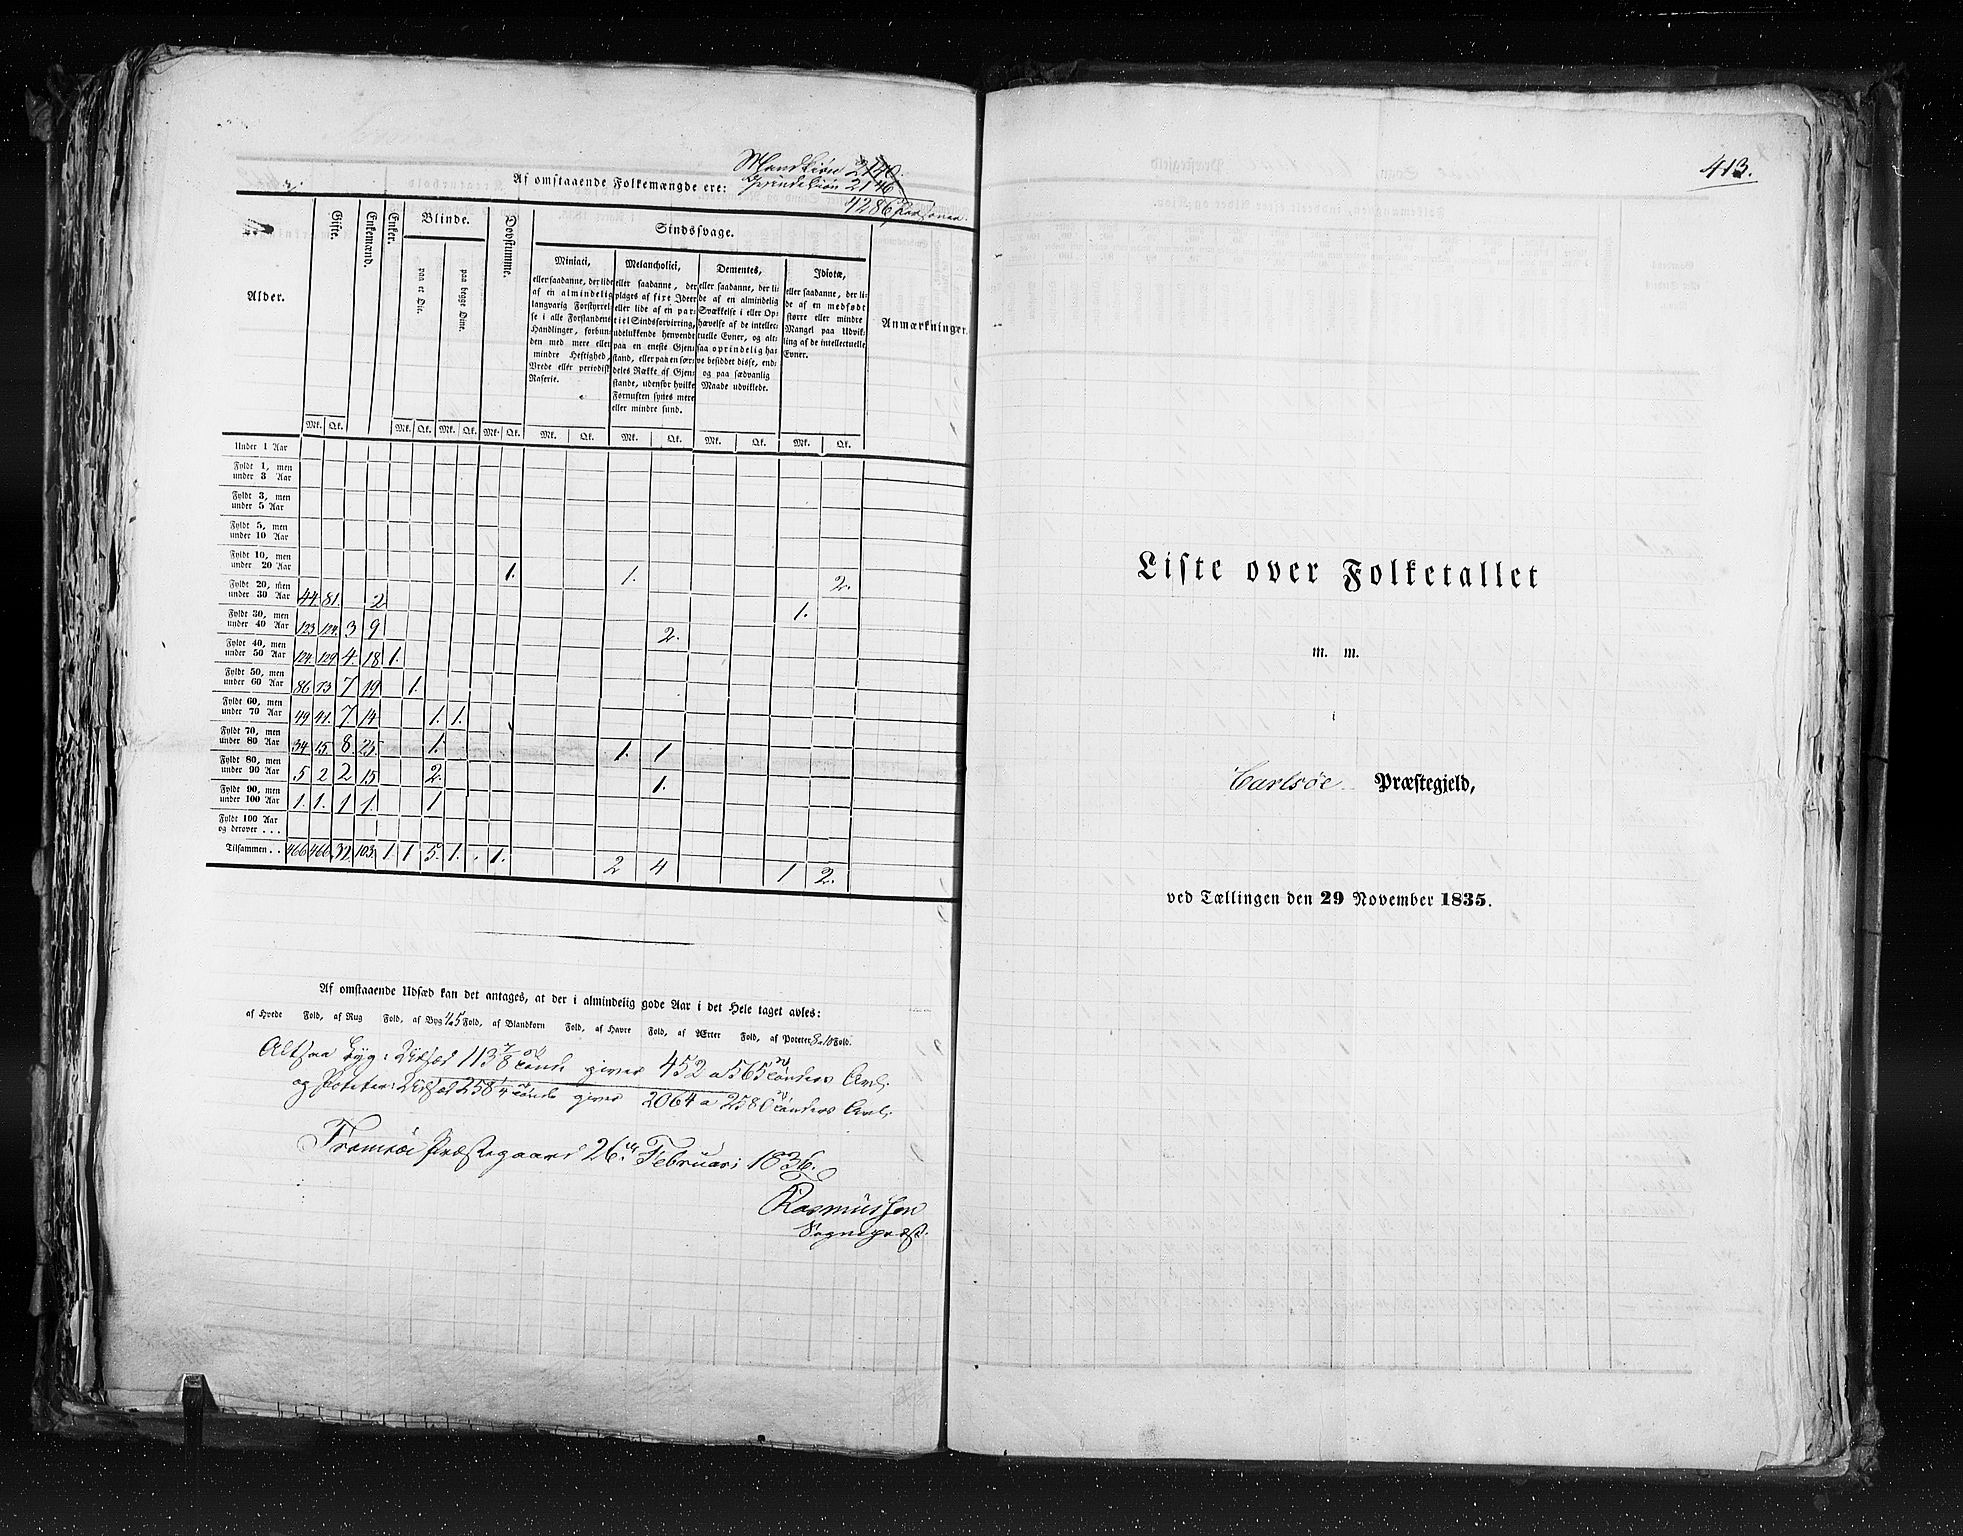 Mandkiøn 2140.
Af omstaaende Folkemængde ere: Qvindekiøn 2146.
4286 Personer.
Alder.
Gifte.
Enkemænd.
Enker.
Blinde.
paa et Øie.
paa begge Øine.
Døvstumme.
Sindssvage.
Miniaci,
eller saadanne, der lide
af en almindelig
langvarig Forstyrrel-
se i alle Forstandens
Handlinger, forbun-
den med mere eller
mindre Heftighed,
Vrede eller periodisk
Raserie.
Melancholici,
eller saadanne, der
plages af fixe Ideer
eller lide af en par-
tiel Sindsforvirring,
udelukkende henvendt
paa en eneste Gjen-
stand, eller paa en sær-
deles Række af Gjen-
stande, udenfor hvilke
Fornuften synes mere
eller mindre sund.
Dementes,
eller saadanne, der li-
de af en almindelig
Svækkelse i eller Op-
hævelse af de intellec-
tuelle Evner, og alt-
saa oprindelig ha-
ve besiddet disse, end-
og paa sædvanlig
Maade udviklede.
Idiotæ,
eller saadanne, der li-
de af en medfødt
større eller mindre
Mangel paa Udvik-
ling af de intellectuelle
Evner.
Anmærkninger.
Mk. Qk. Mk. Qk. Mk. Qk. Mk. Qk. Mk. Qk. Mk. Qk. Mk. Qk. Mk. Qk.
Under 1 Aar
Fyldt 1, men
under 3 Aar
Fyldt 3, men
under 5 Aar
Fyldt 5, men
under 10 Aar
Fyldt 10, men
under 20 Aar 1. 1. 2.
Fyldt 20, men
under 30 Aar 44. 81. 2 1.
Fyldt 30, men
under 40 Aar 123 124. 3 9 2.
Fyldt 40, men
under 50 Aar 124. 129. 4. 18 1.
Fyldt 50, men
under 60 Aar 86 73 7 19 1.
Fyldt 60, men
under 70 Aar 49 41. 7 14 1. 1.
Fyldt 70, men
under 80 Aar 34 15. 8. 25. 1. 1. 1
Fyldt 80, men
under 90 Aar 5 2 2 15 2. 1.
Fyldt 90, men
under 100 Aar 1. 1. 1 1. 1
Fyldt 100 Aar
og derover . . .
Tilsammen . . 466 466. 32. 103. 1 1 5. 1. . 1. 2 4 1 2.
Af omstaaende Udsæd kan det antages, at der i almindelig gode Aar i det Hele taget avles:
af Hvede Fold, af Rug Fold, af Byg 4 a 5 Fold, af Blandkorn Fold, af Havre Fold, af Ærter Fold, af Poteter 8 a 10 Fold.
Altsaa Byg: Udsæd 113 7/8 Tønde giver 452 a 565 Tønders Avl.
og Poteter: Udsæd 258 1/4 Tønde giver 2064 a 2580 Tønders Avl.
Tromsøe Præstegaard 26. Februari 1836.
Rasmussen
Sognepræst.
413.
Liste over Folketallet
m. m.
i
Carlsøe Præstegjeld,
ved Tællingen den 29 November 1835.